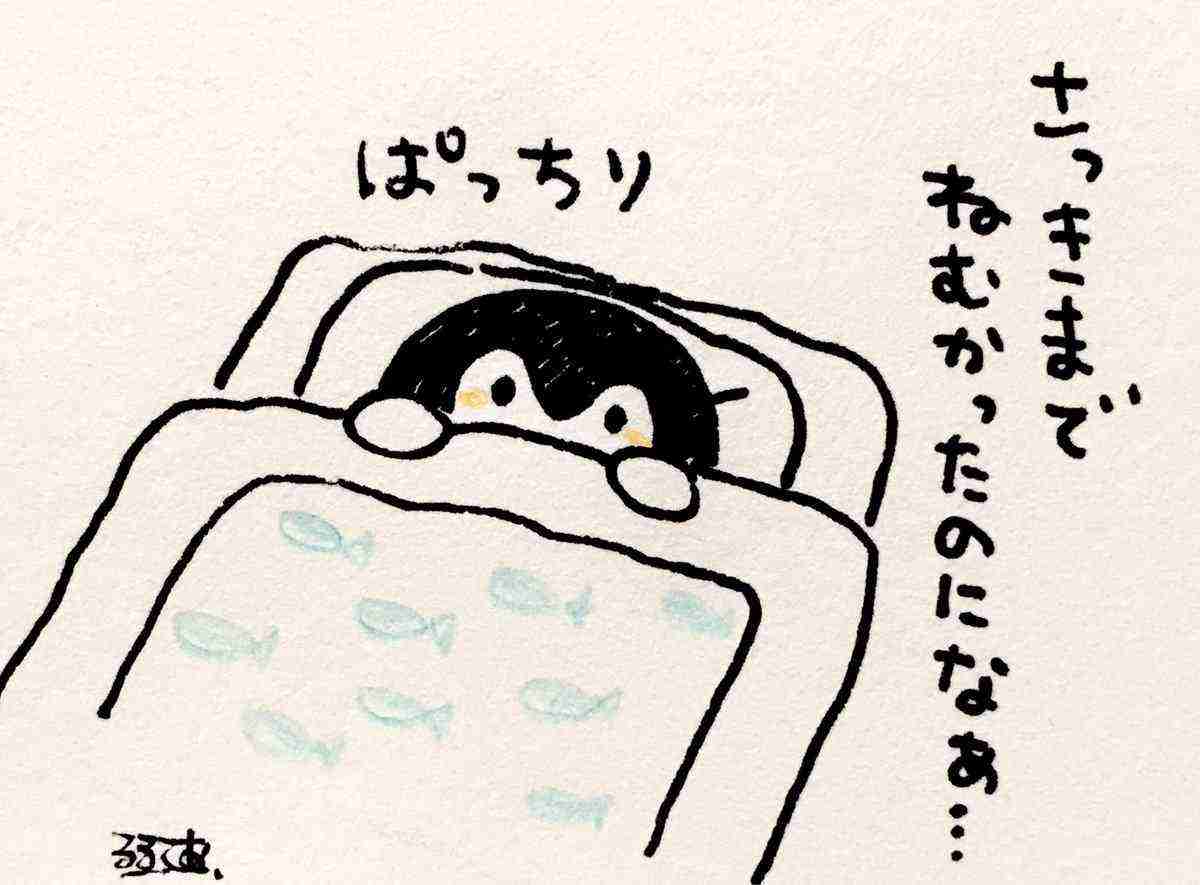 さっきまで
ねむかったのになぁ…
ぱっちり